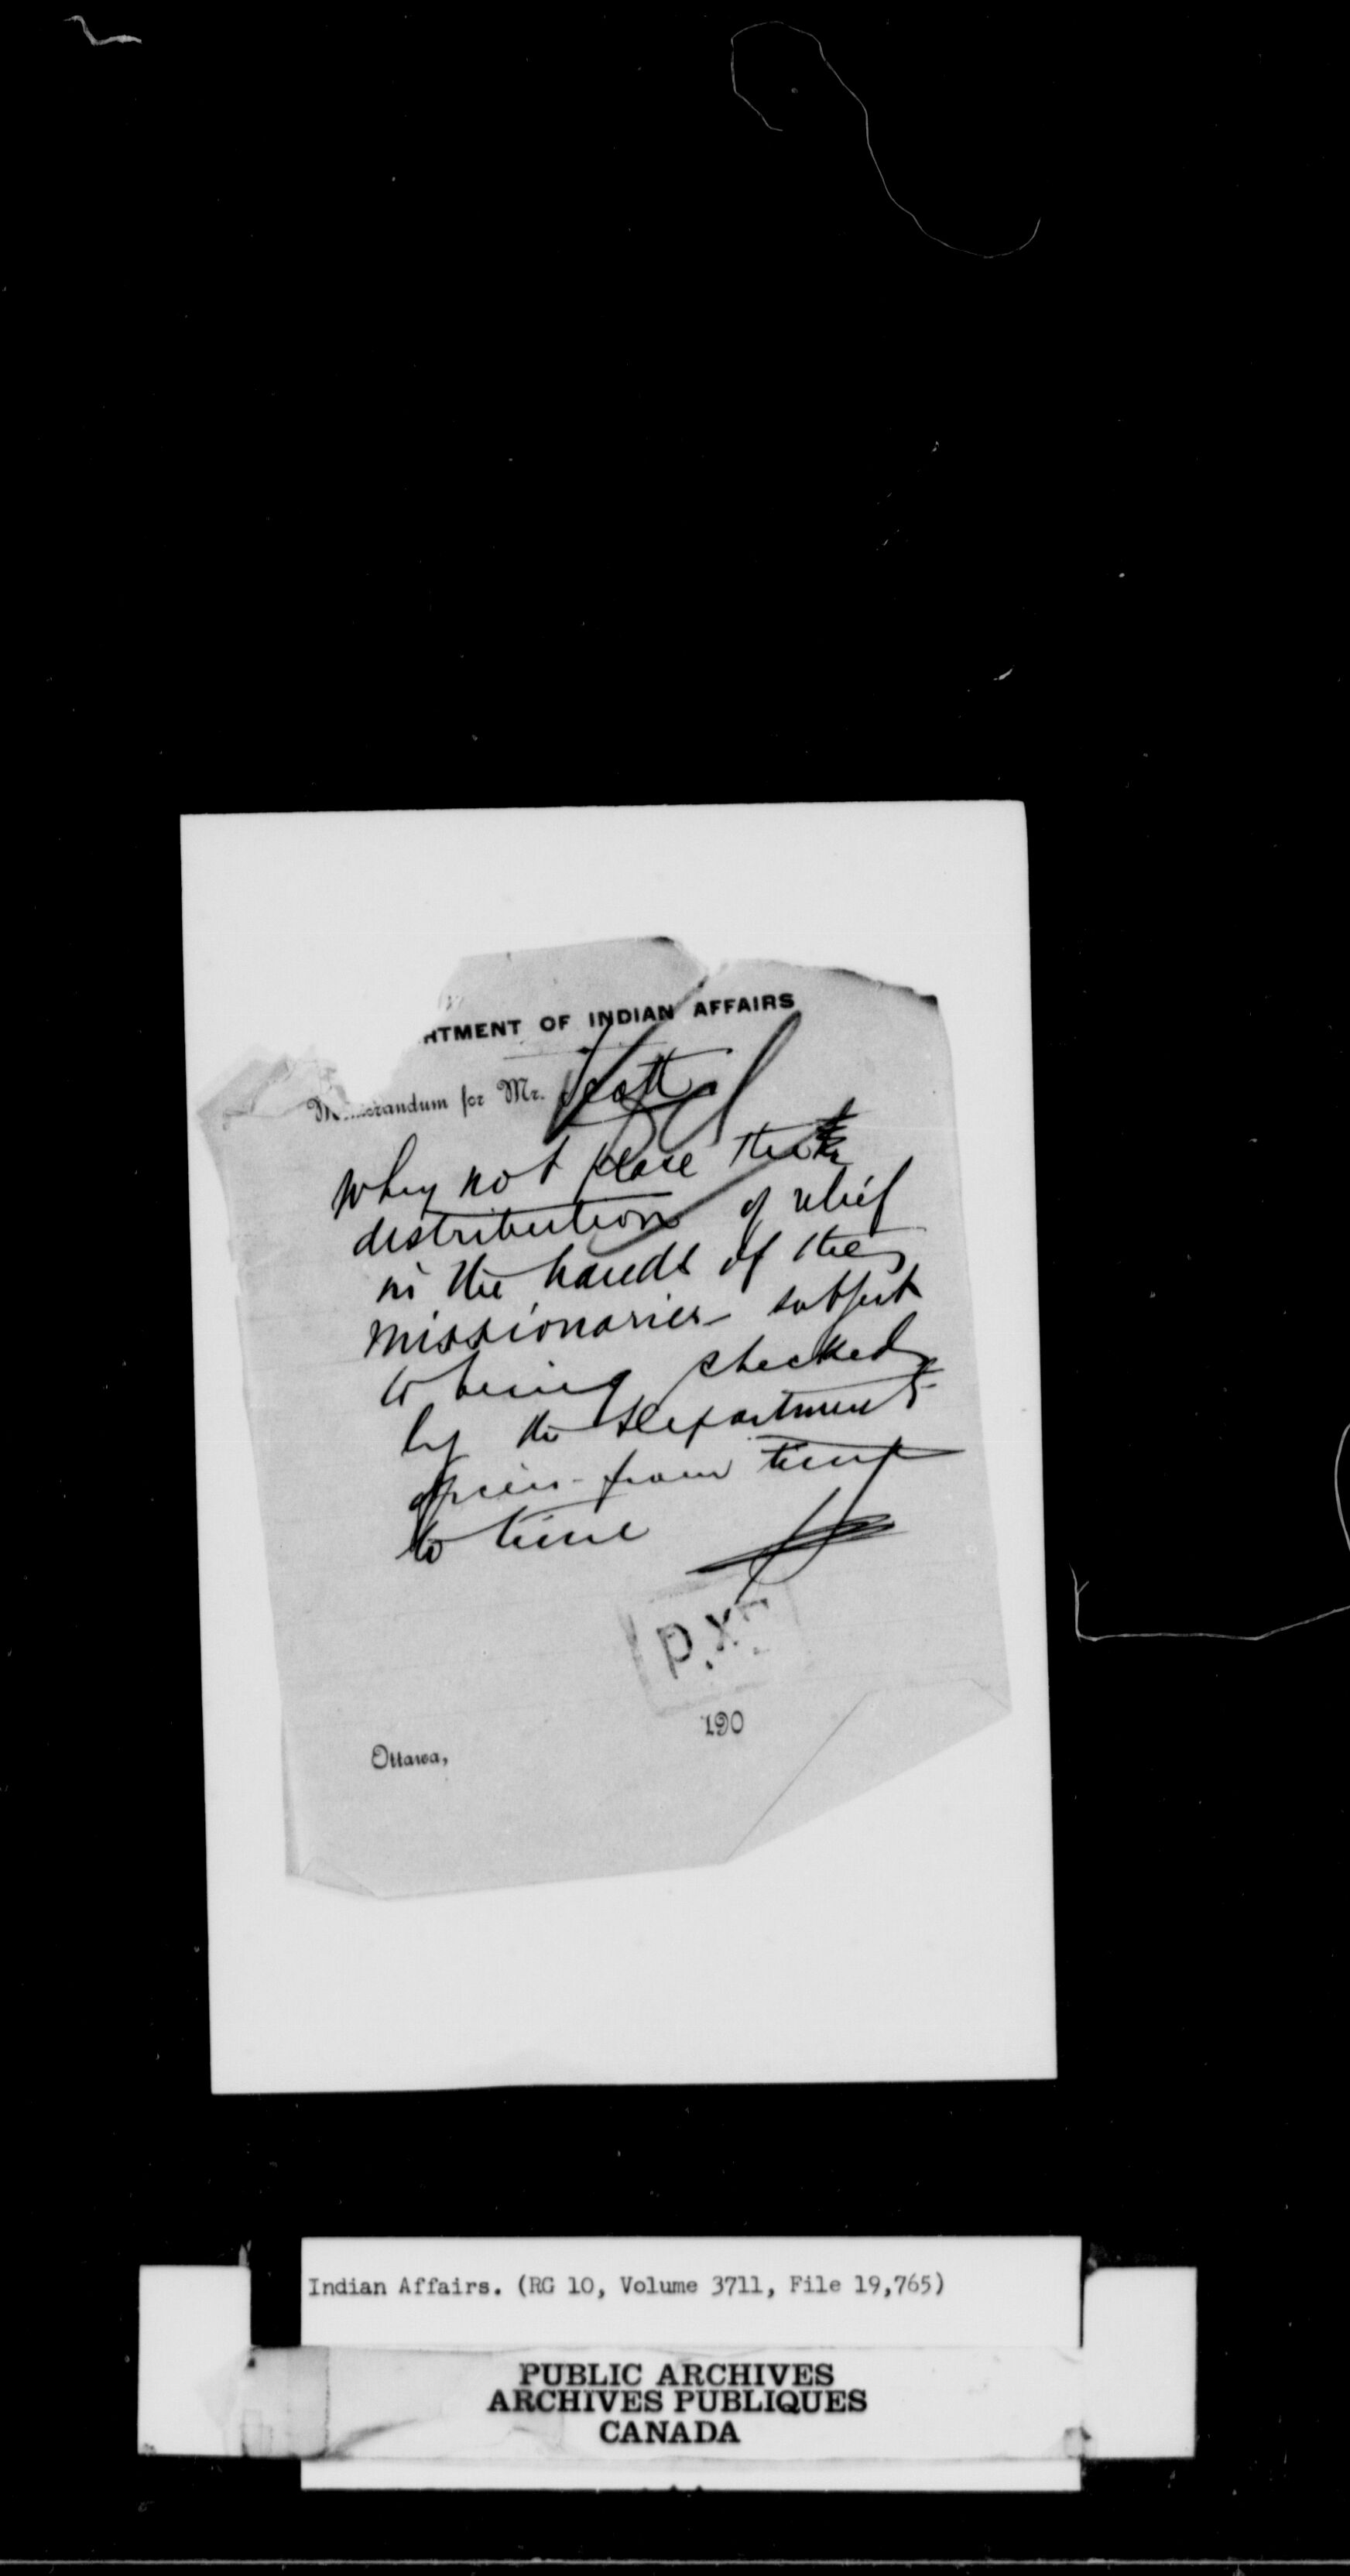 RTMENT OF INDIAN AFFAIRS
Memorandum for Mr. Scott
Why not place the
distribution of relief
in the hands of the
missionaries - subject
to being checked
by the Department
from time
to time
P.X.
190
Ottawa,
Indian Affairs. (RG 10, Volume 3711, File 19,765)
PUBLIC ARCHIVES
ARCHIVES PUBLIQUES
CANADA